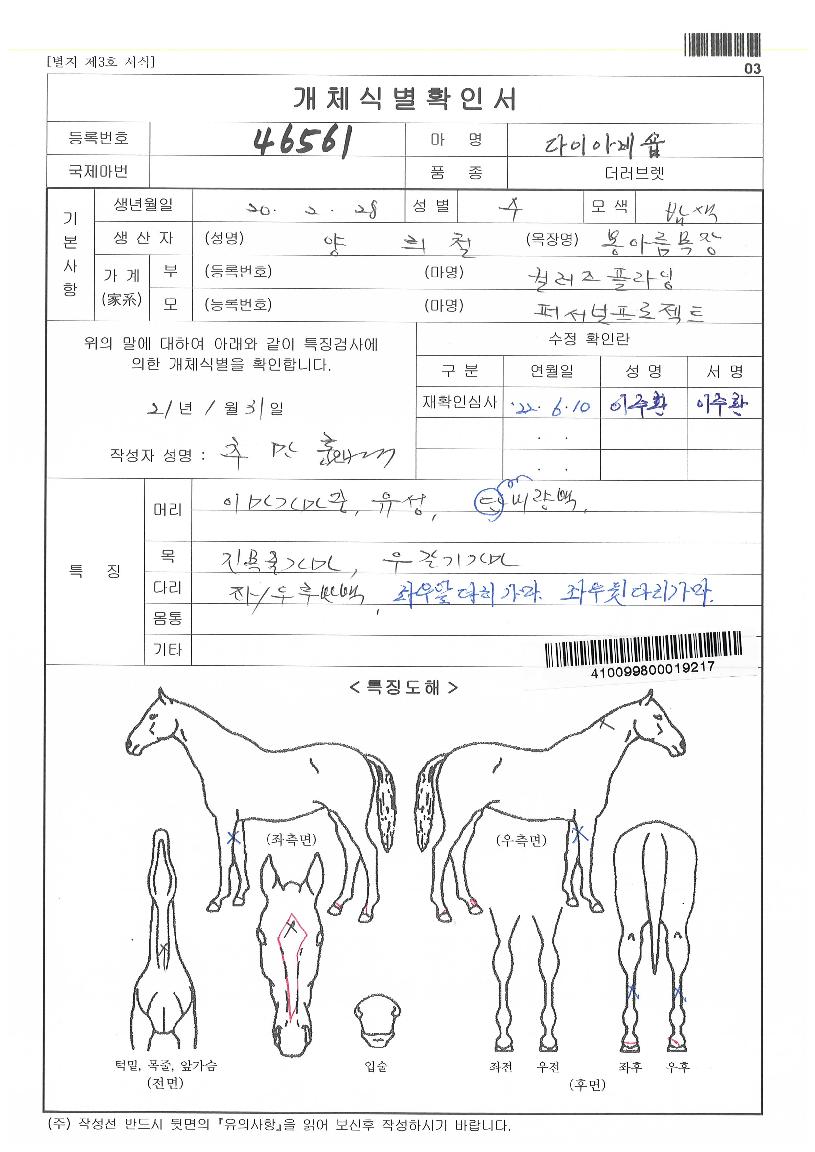 [별지 제3호 서식]
03
개체식별확인서
등록번호 46561 마 명 다이아제왕
국제마번 품 종 더러브렛
기본사항
생년월일 20. 2. 28 성 별 수 모 색 밤색
생 산 자 (성명) 양 희 철 (목장명) 봉아름목장
가 계 (家系) 부 (등록번호) (마명) 컬러즈플라잉
모 (등록번호) (마명) 퍼서널프로젝트
위의 말에 대하여 아래와 같이 특징검사에
의한 개체식별을 확인합니다.
21년 1월 31일
작성자 성명 : 추 민
수정 확인란
구 분 연월일 성 명 서 명
재확인심사 '22. 6. 10 이주환 이주환
. .
. .
특 징
머리 유성, 비량백,
목
다리 좌/우후 좌우앞다리가마. 좌우뒷다리가마.
몸통
기타
410099800019217
< 특징도해 >
(좌측면) (우측면)
턱밑, 목줄, 앞가슴 입술 좌전 우전 좌후 우후
(전면) (후면)
(주) 작성선 반드시 뒷면의 『유의사항』을 읽어 보신후 작성하시기 바랍니다.